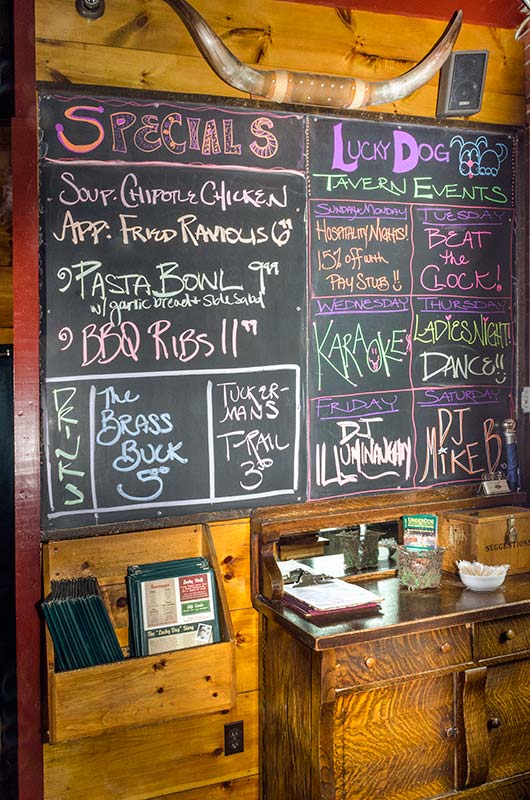 SPECIALS
SOUP: CHIPOTLE CHICKEN
APP: FRIED RAVIOLIS 6
PASTA BOWL 9.99
w/ garlic bread + Side Salad
BBQ RIBS 11.99
The
BRASS
BUCK
5.00
TUCKER-
MANS
T-RAIL
3.00
LUCKY DOG
TAVERN EVENTS
SUNDAY + MONDAY
HOSPITALITY NIGHTS!
15% off with
PAY STUB!!
TUESDAY
BEAT
the
CLOCK!
WEDNESDAY
KARAOKE
THURSDAY
LADIES NIGHT!
DANCE!!
FRIDAY
DJ
ILLUMINAUGHTY
SATURDAY
DJ
MIKE B.
SUGGESTIONS
UNDERDOG
Lucky Stuff
Gift Cards
The "Lucky Dog" Story